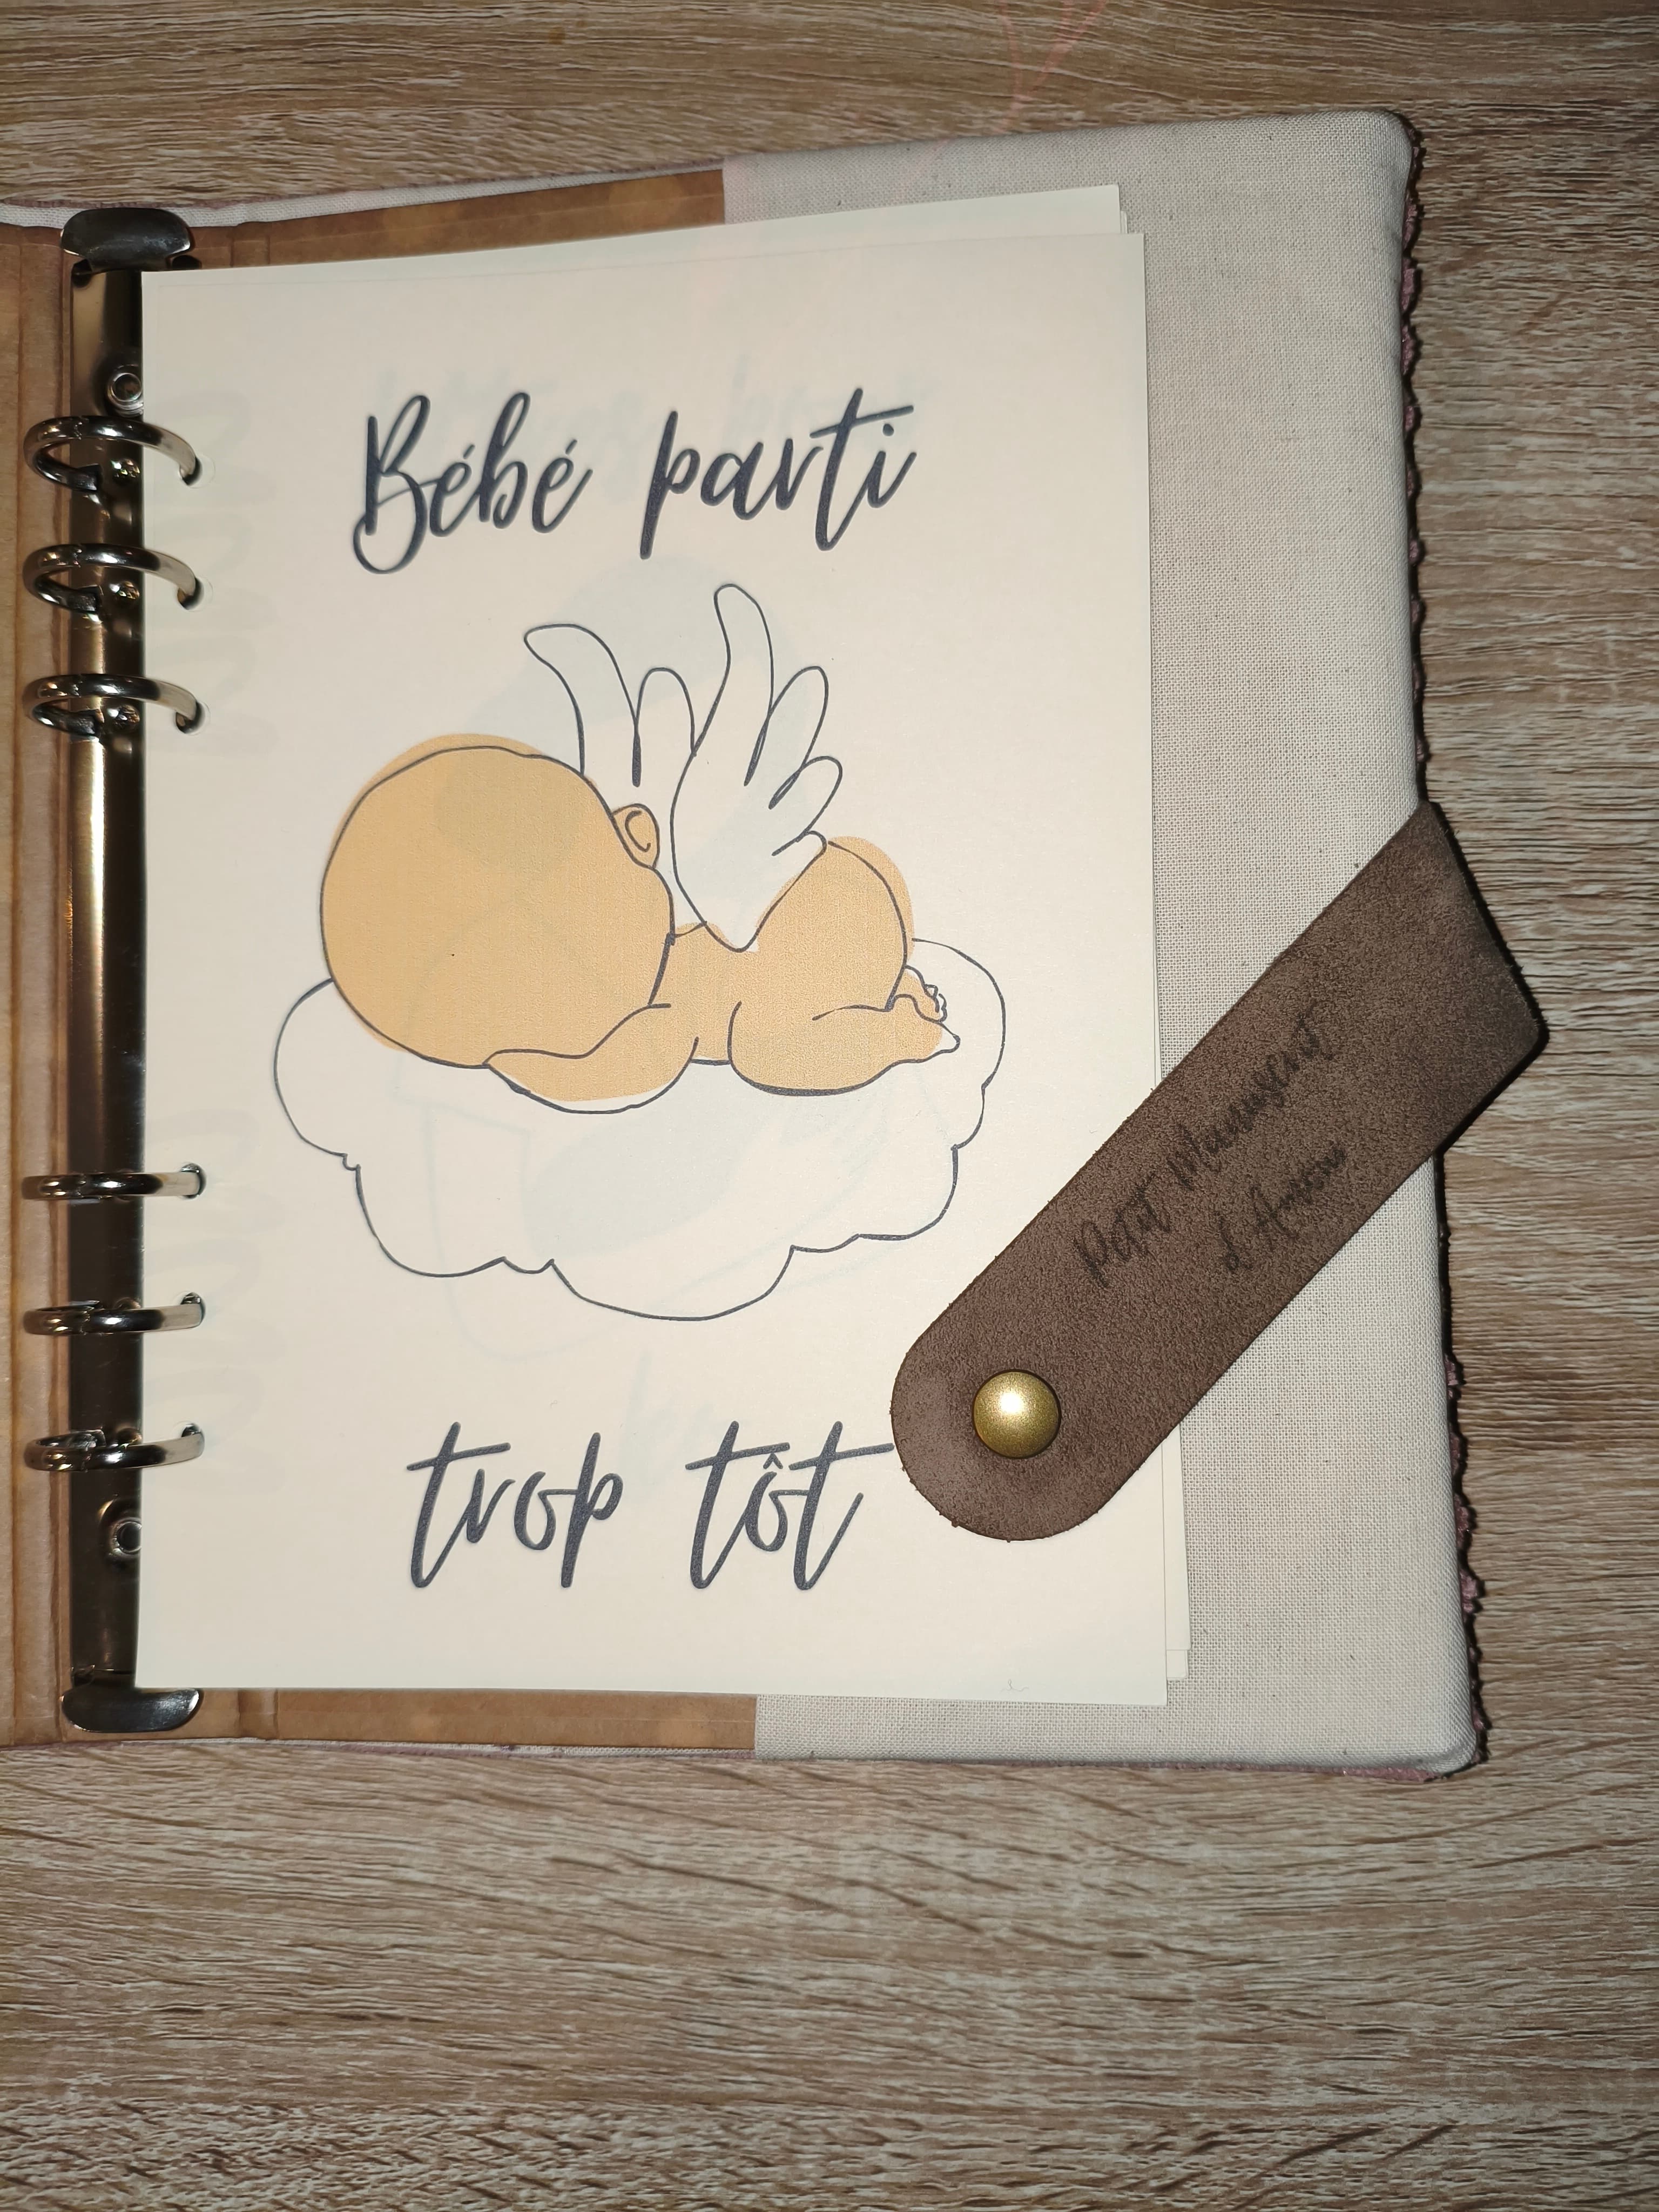 Bébé parti
trop tôt
Petit Mumsent
d'Amour